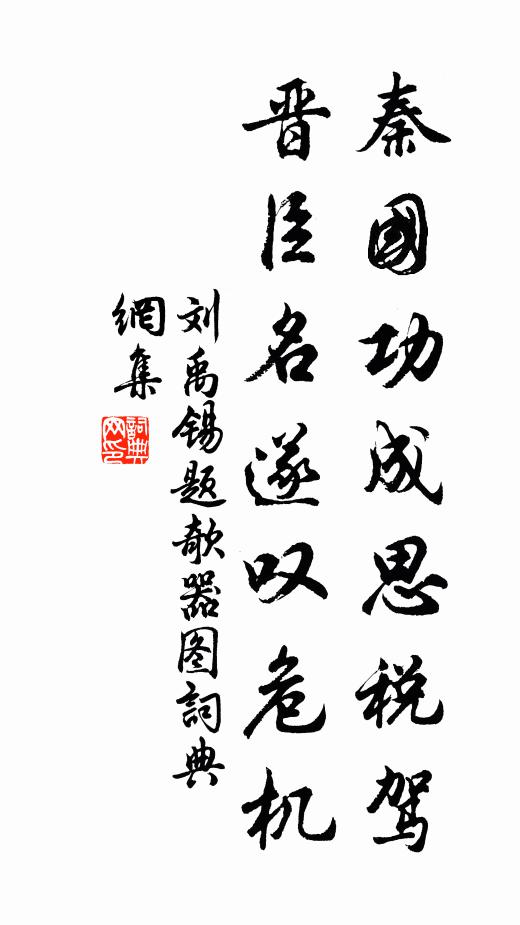 秦國功成思税駕
晋臣名遂叹危机
刘禹锡题欹器图詞典
網集
詞典
网印